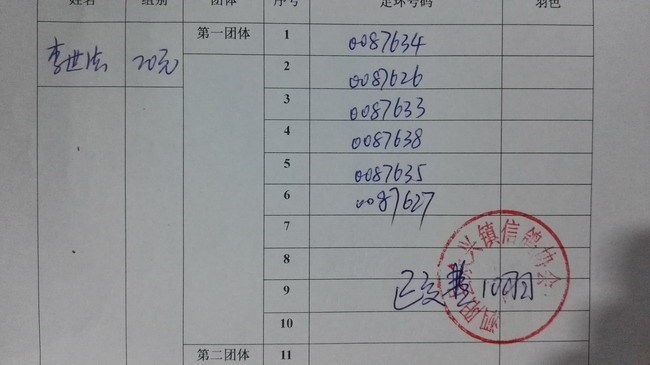 姓名 组别 团体 序号 足环号码 羽色
李世法 20元 第一团体 1 0087634
2 0087626
3 0087633
4 0087638
5 0087635
6 0087627
7
8
9 已交 100羽
10
第二团体 11
兴镇信鸽协会